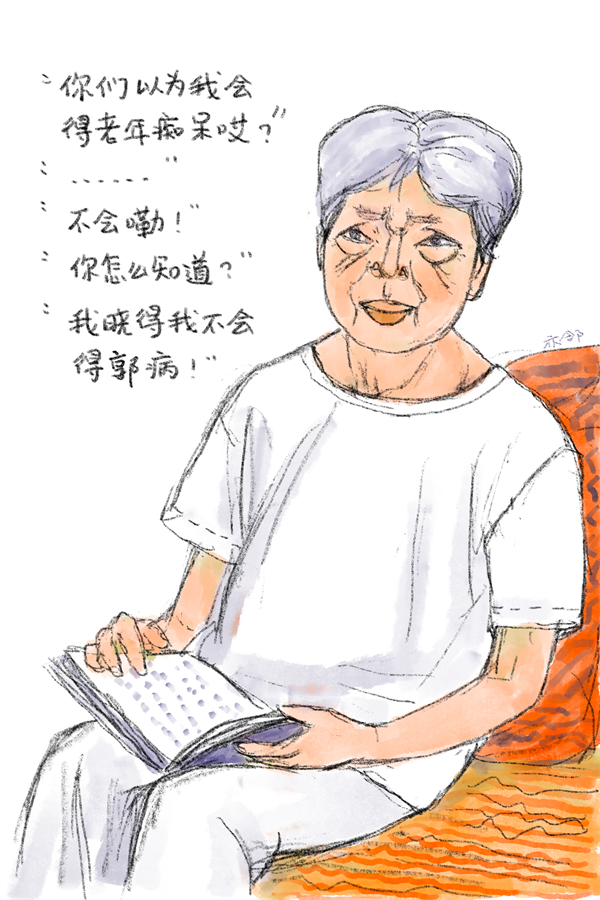 “你们以为我会
得老年痴呆哎？”
“......”
“不会嘞！”
“你怎么知道？”
“我晓得我不会
得郭病！”
亦邻